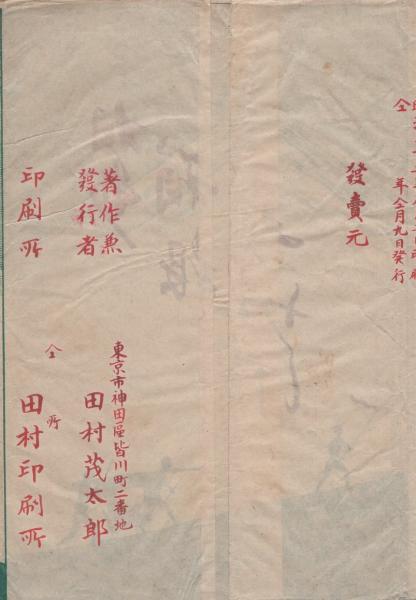 仝 年仝月九日發行
發賣元
東京市神田區皆川町二番地
著作兼
發行者 田村茂太郎
印刷所 仝所 田村印刷所